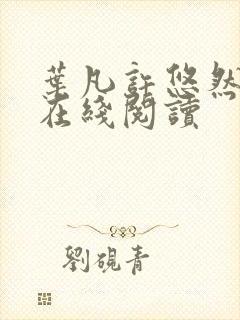 葉凡許悠然
在綫閱讀
劉硯青